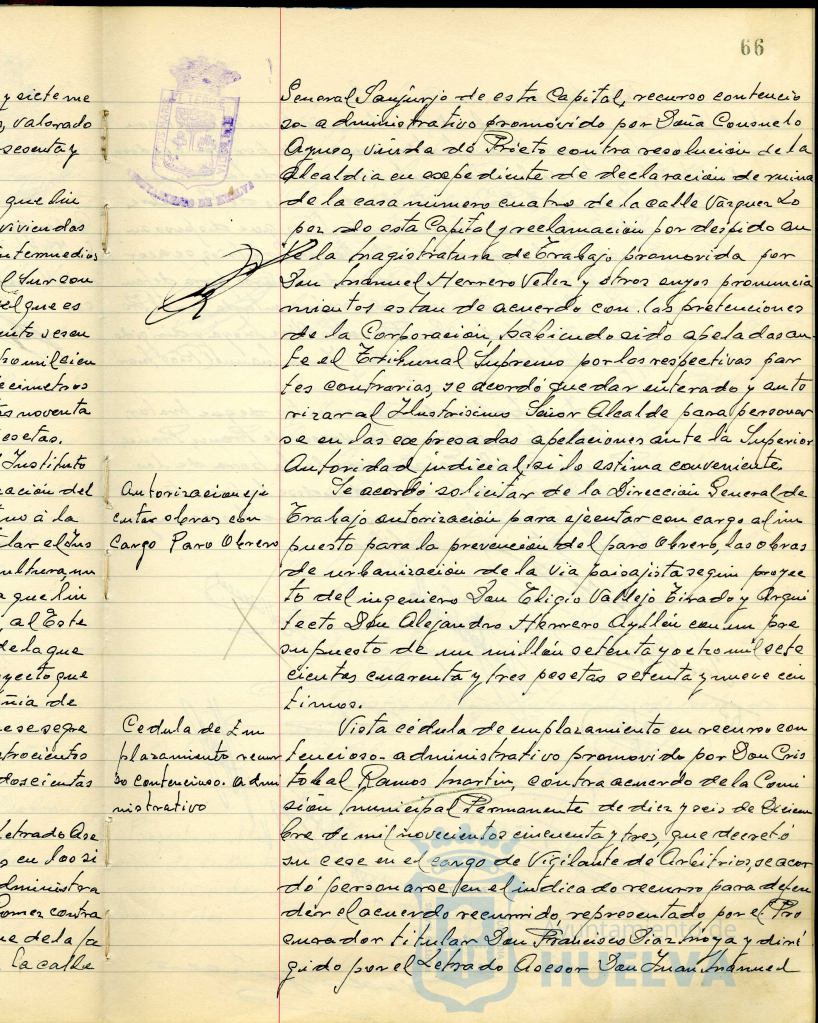 66
y siete me
s, valorado
sesenta y
que lin
viviendas
intermedios
l Sur con
el que es
ento sesen
tro mil cien
ecimetros
tas noventa
esetas.
Instituto
ración del
tuo a la
lar el Ins
ultura, un
a que lin
al Este
de la que
yecto que
ñia de
e se segre
trocientos
doscientas
Letrado Ase
s en los si
dministra
Gomez contra
ue de la fa
la calle
AYUNTAMIENTO DE HUELVA
Autorizacion eje
cutar obras con
cargo Paro Obrero
Cedula de Em
plazamiento recur
so contencioso-admi
nistrativo
General Sanjurjo de esta Capital, recurso contencio
so-administrativo promovido por Doña Consuelo
viuda de Prieto contra resolución de la
Alcaldia en expediente de declaración de ruina
de la casa número cuatro de la calle Vazquez Lo
pez de esta Capital y reclamación por despido an
te la Magistratura de Trabajo promovida por
Don Manuel Herrero Velez y otros cuyos pronuncia
mientos estan de acuerdo con las pretenciones
de la Corporación, habiendo sido apeladas an-
te el Tribunal Supremo por las respectivas par
tes contrarias, se acordó quedar enterado y auto
rizar al Ilustrisimo Señor Alcalde para personar
se en las expresadas apelaciones ante la Superior
Autoridad judicial, si lo estima conveniente.
Se acordó solicitar de la Dirección General de
Trabajo autorización para ejecutar con cargo al im
puesto para la prevención del paro Obrero, las obras
de urbanización de la Via paisajista segun proyec
to del ingeniero Don Eligio Vallejo Tirado y Arqui
tecto Don Alejandro Herrero Ayllón con un pre
supuesto de un millón setenta y ocho mil sete
cientas cuarenta y tres pesetas setenta y nueve cen
timos.
Vista cédula de emplazamiento en recurso con
tencioso-administrativo promovido por Don Cris
tobal Ramos Martin, contra acuerdo de la Comi
sión Municipal Permanente de diez y seis de Diciem
bre de mil novecientos cincuenta y tres, que decretó
su cese en el cargo de Vigilante de Arbitrios, se acor
dó personarse en el indicado recurso para defen
der el acuerdo recurrido, representado por el Pro
curador titular Don Francisco Diaz Moya y diri
gido por el Letrado Asesor Don Juan Manuel
Ayuntamiento de
HUELVA